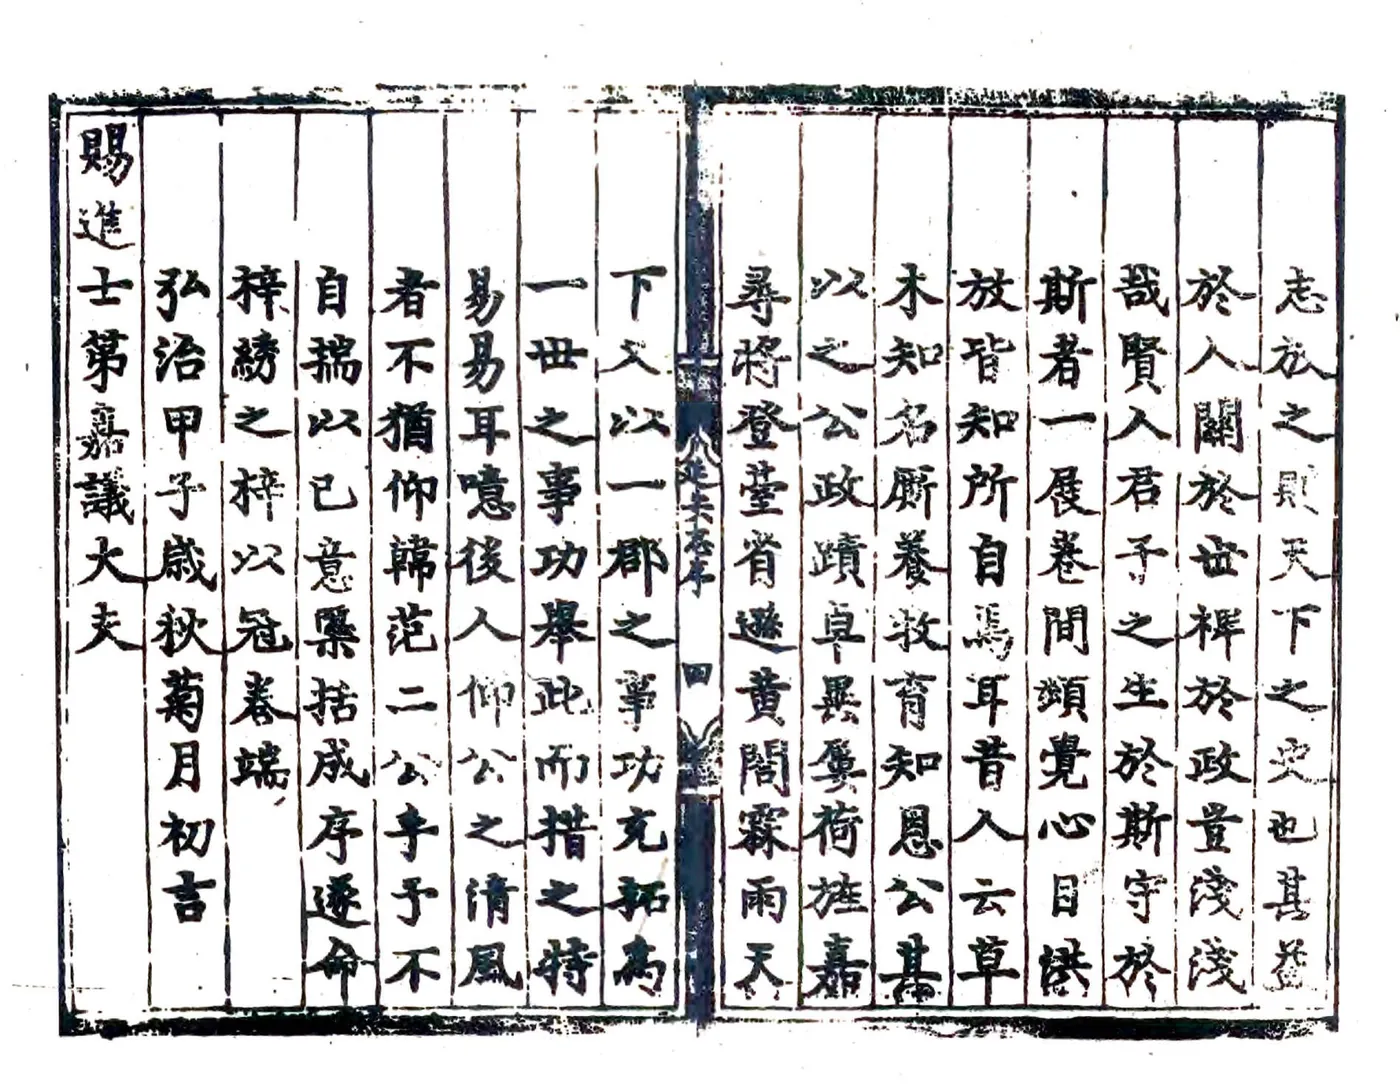 志放之則天下之史也其益
於人關於世裨於政豈淺淺
哉賢人君子之生於斯守於
斯者一展卷間頓覺心目洪
放皆知所自焉耳昔人云草
木知名廝養牧育知恩公其
以之公政蹟卓異屢荷旌嘉
尋將登臺省遜黃閣霖雨天
延安志序
四
下又以一郡之事功充拓為
一世之事功舉此而措之特
易易耳噫後人仰公之清風
者不猶仰韓范二公乎予不
自揣以己意檃括成序遂命
梓綉之梓以冠卷端
弘治甲子歲秋菊月初吉
賜進士第嘉議大夫